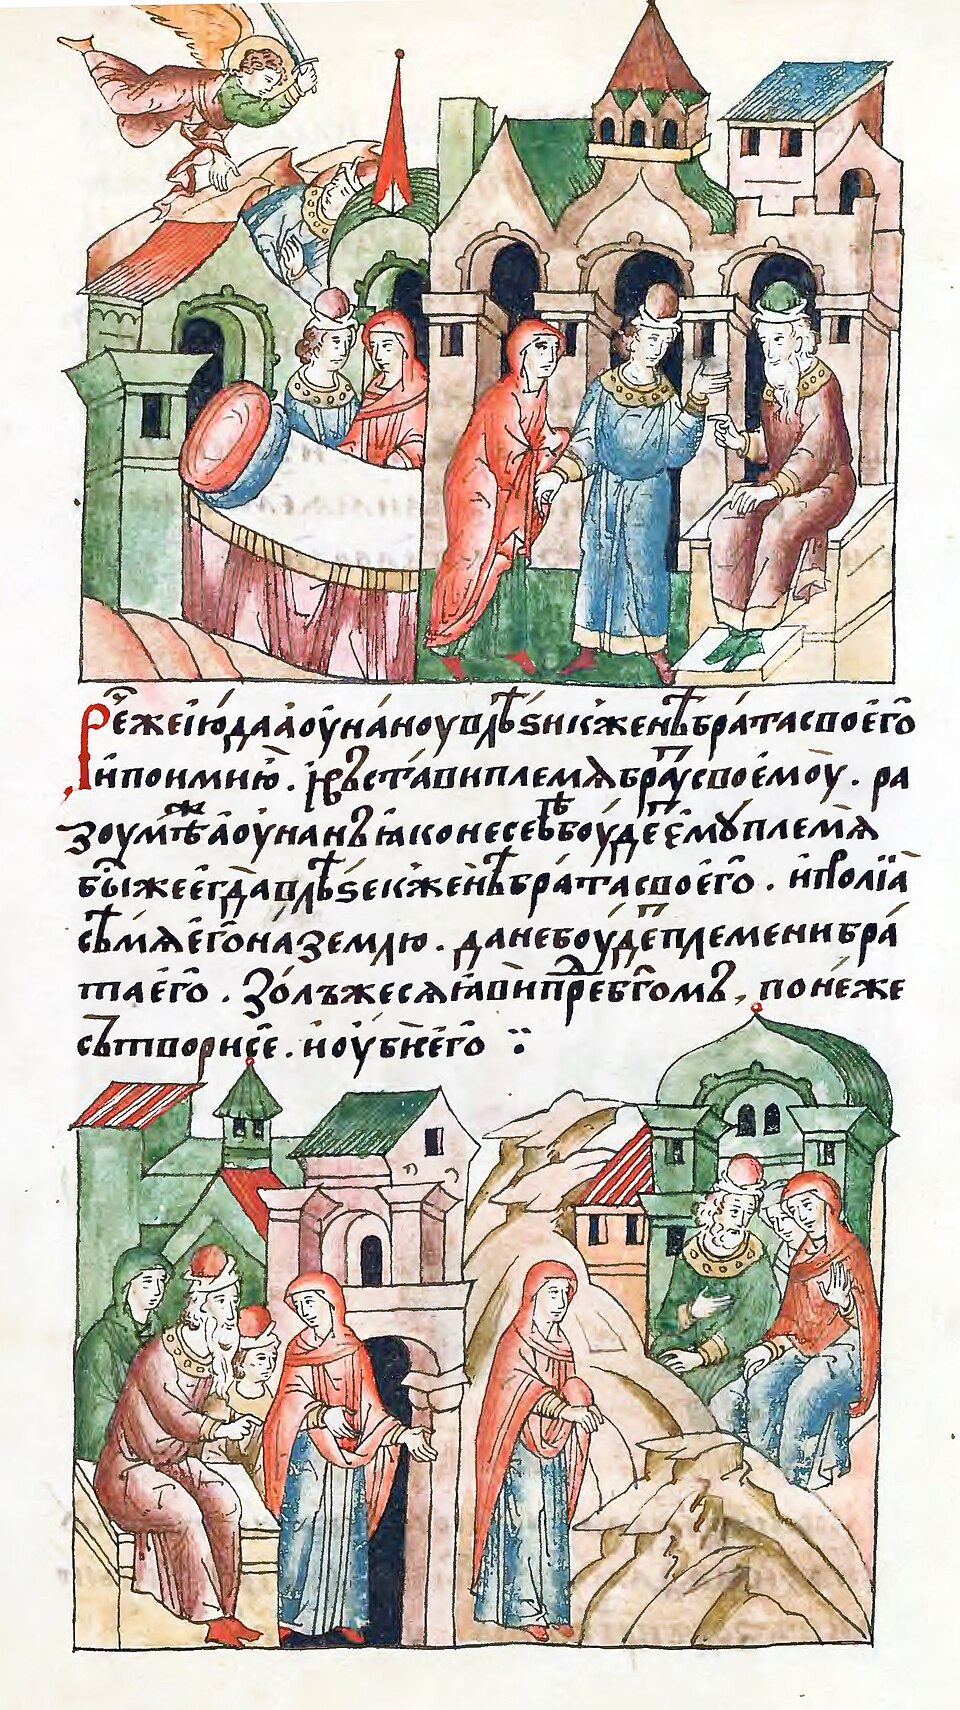 Рече же іюда аоунаноу влѣзи къ женѣ брата своего
и поими ю. и въстави племѧ братоу своемоу. ра
зоумѣ же аоунанъ ꙗко не себѣ боудетъ емꙋ племѧ
бысть же егда влѣзе къ женѣ брата своего. и пролїа
сѣмѧ его на землю. да не боудетъ племени бра
та его. зол же сѧ ꙗви предъ богомъ, понеже
сътвори се. и оуби его